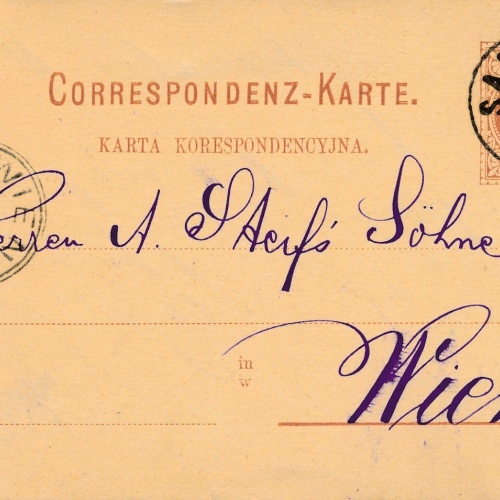 CORRESPONDENZ-KARTE.
KARTA KORESPONDENCYJNA.
SA
WIEN
Herren A. Steif's Söhne
in
w
Wien